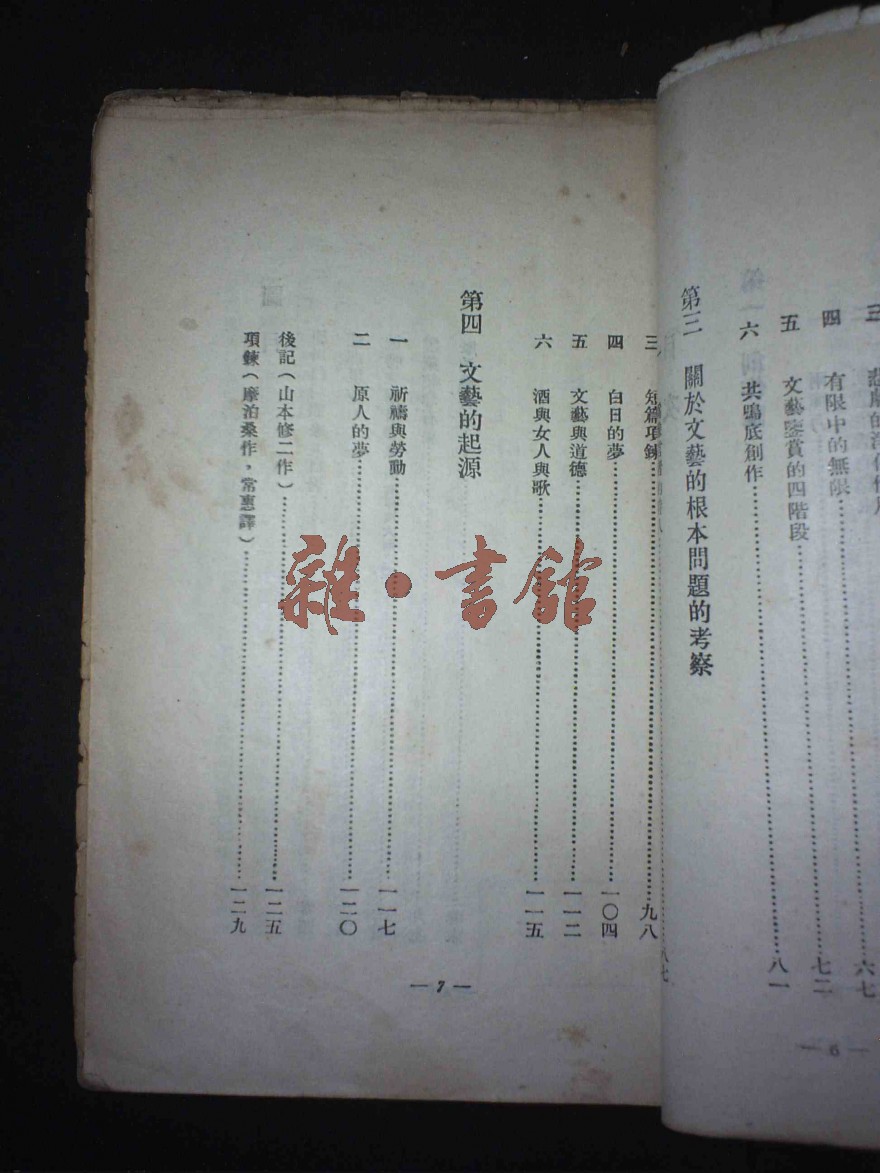 三
四 有限中的無限 七二
五 文藝鑒賞的四階段
六 共鳴底創作 八一
第三 關於文藝的根本問題的考察
六七
— 6 —
三 短篇項鍊 九八
四 白日的夢 一〇四
五 文藝與道德 一一二
六 酒與女人與歌 一一五
第四 文藝的起源
一 祈禱與勞動 一一七
二 原人的夢 一二〇
後記（山本修二作） 一二五
項鍊（摩泊桑作，常惠譯） 一二九
— 7 —
雜·書館